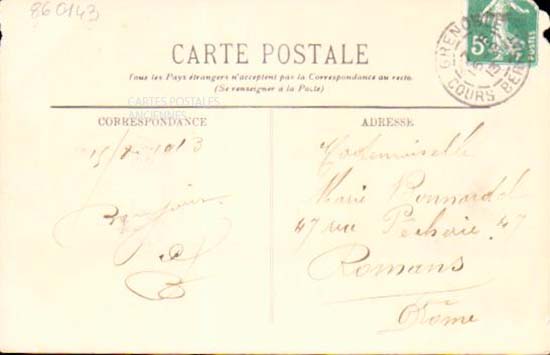 860143
CARTE POSTALE
Tous les Pays étrangers n'acceptent pas la Correspondance au recto.
(Se renseigner à la Poste)
CARTES POSTALES
ANCIENNES
CORRESPONDANCE
Bonjour
ADRESSE
Mademoiselle
Marie Ponnardel
47 rue Pêcherie 47
Romans
Drôme
GRENOBLE
COURS BERRIAT
5c
POSTES